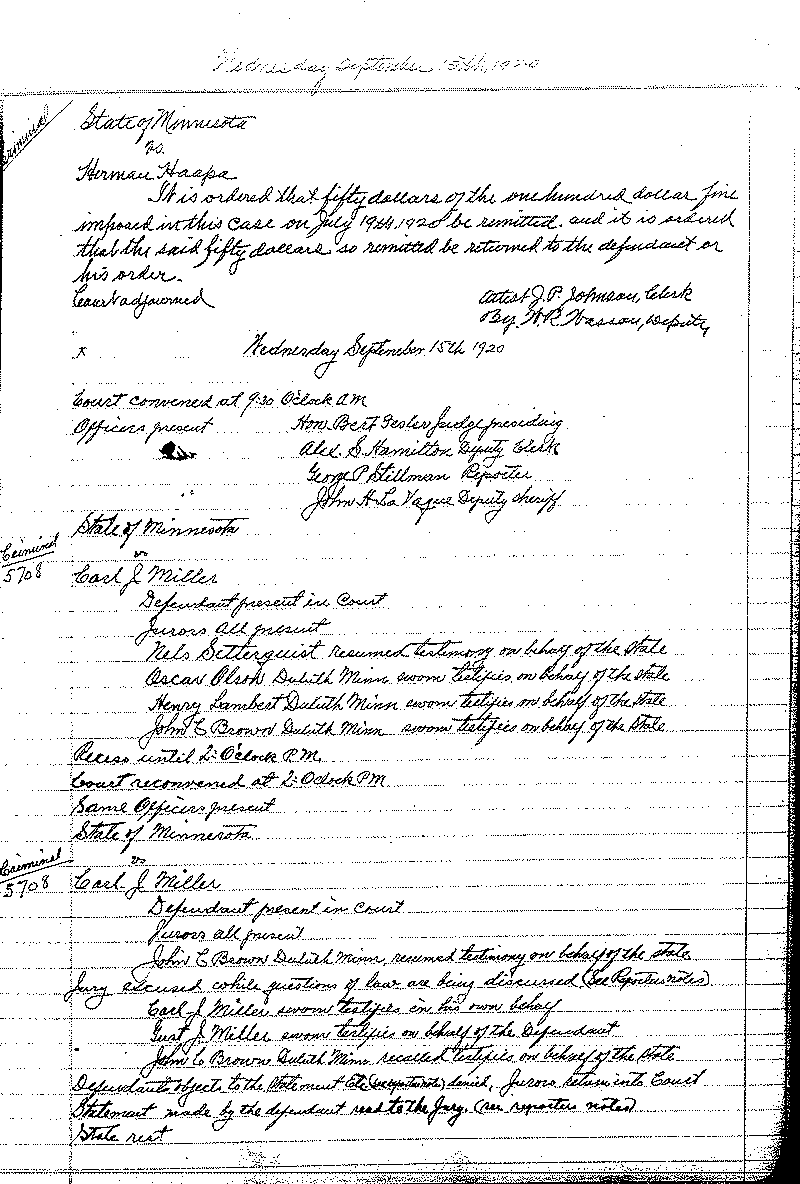 Wednesday September 15th, 1920
Criminal
State of Minnesota
vs.
Herman Haapa
It is ordered that fifty dollars of the one hundred dollar fine
imposed in this case on July 19th, 1920 be remitted. and it is ordered
that the said fifty dollars so remitted be returned to the defendant or
his order.
Court adjourned
Attest J. P. Johnson, Clerk
By. W. R. Wasson, Deputy
x Wednesday September 15th 1920
Court convened at 9:30 O'clock A M
Officers present Hon Bert Fesler Judge presiding
Alex. S. Hamilton Deputy Clerk
George P Stillman Reporter
John H La Vaque Deputy Sheriff
State of Minnesota
Criminal
5708
vs
Carl J Miller
Defendant present in Court
Jurors all present
Nels Setterquist resumed testimony on behalf of the state
Oscar Olson Duluth Minn sworn testifies on behalf of the state
Henry Lambert Duluth Minn sworn testifies on behalf of the state
John C Brown Duluth Minn sworn testifies on behalf of the state
Recess until 2: O'clock P.M.
Court reconvened at 2: O'clock P M
Same Officers present
State of Minnesota
Criminal
5708
vs
Carl J Miller
Defendant present in Court
Jurors all present
John C Brown Duluth Minn, resumed testimony on behalf of the state
Jury excused while questions of law are being discussed (See Reporters notes)
Carl J Miller sworn testifies in his own behalf
Gust J. Miller sworn testifies on behalf of the Defendant
John C Brown Duluth Minn recalled testifies on behalf of the state
Defendant objects to the statement denied, Jurors return into Court
Statement made by the defendant read to the Jury. (see reporters notes)
State rest